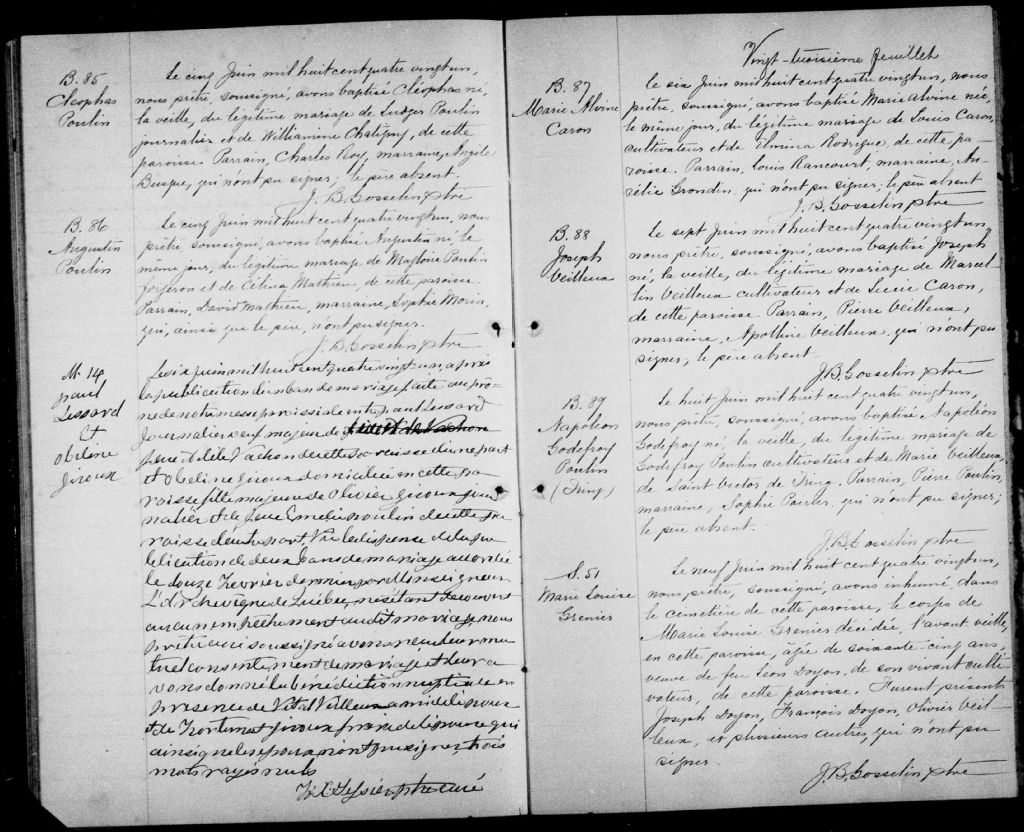 B. 85
Cléophas
Poulin
Le cinq Juin mil huit cent quatre vingt un,
nous prêtre, soussigné, avons baptisé Cléophas né,
la veille, du légitime mariage de Poulin
journalier et de Williamine Chatigny, de cette
paroisse Parrain, Charles Roy, marraine, Angèle
Busque, qui n'ont pu signer; le père absent.
J. B. Gosselin ptre
B. 86
Augustin
Poulin
Le cinq Juin mil huit cent quatre vingt un, nous
prêtre, soussigné, avons baptisé Augustin né, le
même jour, du légitime mariage de Magloire Poulin
forgeron et de Célina Mathieu, de cette paroisse
Parrain, David Mathieu, marraine, Sophie Morin,
qui, ainsi que le père, n'ont pu signer.
J. B. Gosselin ptre
M. 14
paul
Lessard
et
Obéline
giroux
Le six Juin mil huit cent quatre vingt un, après
la publication d'un ban de mariage faite au prô-
ne de notre messe paroissiale entre paul Lessard
Journalier veuf majeur de
feue Adèle Vachon de cette paroisse d'une part
et Obeline giroux domiciliée en cette pa-
roisse fille majeure de Olivier giroux jour
nalier et de feue Emélie poulin de cette pa
roisse d'autre part, Vu la dispense de la pu
blication de deux bans de mariage accordée
le douze Fevrier dernier par Monseigneur
L'archevêque de Québec, n'étant découvert
aucun empêchement au dit mariage, nous
prêtre curé soussigné avons reçu leur mu
tuel consentement de mariage et leur a
vons donné la bénédiction nuptiale en
présence de Vital Veilleux ami de l'époux
et de Fortunat giroux frère de l'épouse qui
ainsi que les époux n'ont pu signer, trois
mots rayés nuls
Tessier ptre curé
Vingt-troisième feuillet
B. 87
Marie Alvine
Caron
Le six Juin mil huit cent quatre vingt un, nous
prêtre, soussigné, avons baptisé Marie Alvine née,
le même jour, du légitime mariage de Louis Caron,
cultivateur et de Elmina Rodrigue, de cette pa-
roisse. Parrain, Louis Rancourt, marraine, Au-
rélie Grondin, qui n'ont pu signer; le père absent
J. B. Gosselin ptre
B. 88
Joseph
Veilleux
Le sept Juin mil huit cent quatre vingt un,
nous prêtre, soussigné, avons baptisé Joseph
né, la veille, du légitime mariage de Marcel-
lin Veilleux cultivateur et de Lucie Caron,
de cette paroisse Parrain, Pierre Veilleux,
marraine, Apolline Veilleux, qui n'ont pu
signer; le père absent.
J. B. Gosselin ptre
B. 89
Napoléon
Godefroy
Poulin
(Tring)
Le huit Juin mil huit cent quatre vingt un,
nous prêtre, soussigné, avons baptisé, Napoléon
Godefroy né, la veille, du légitime mariage de
Godefroy Poulin cultivateur et de Marie Veilleux,
de Saint Victor de Tring. Parrain, Pierre Poulin,
marraine, Sophie Poirier qui n'ont pu signer;
le père absent.
J. B. Gosselin ptre
S. 51
Marie Louise
Grenier
Le neuf Juin mil huit cent quatre vingt un,
nous, prêtre, soussigné, avons inhumé dans
le cimetière de cette paroisse, le corps de
Marie Louise Grenier décédée, l'avant veille,
en cette paroisse, âgée de soixante-cinq ans,
veuve de feu Léon Doyon, de son vivant culti-
vateur, de cette paroisse. Furent présents
Joseph Doyon, François Doyon, Olivier Veil-
leux, et plusieurs autres, qui n'ont pu
signer.
J. B. Gosselin ptre